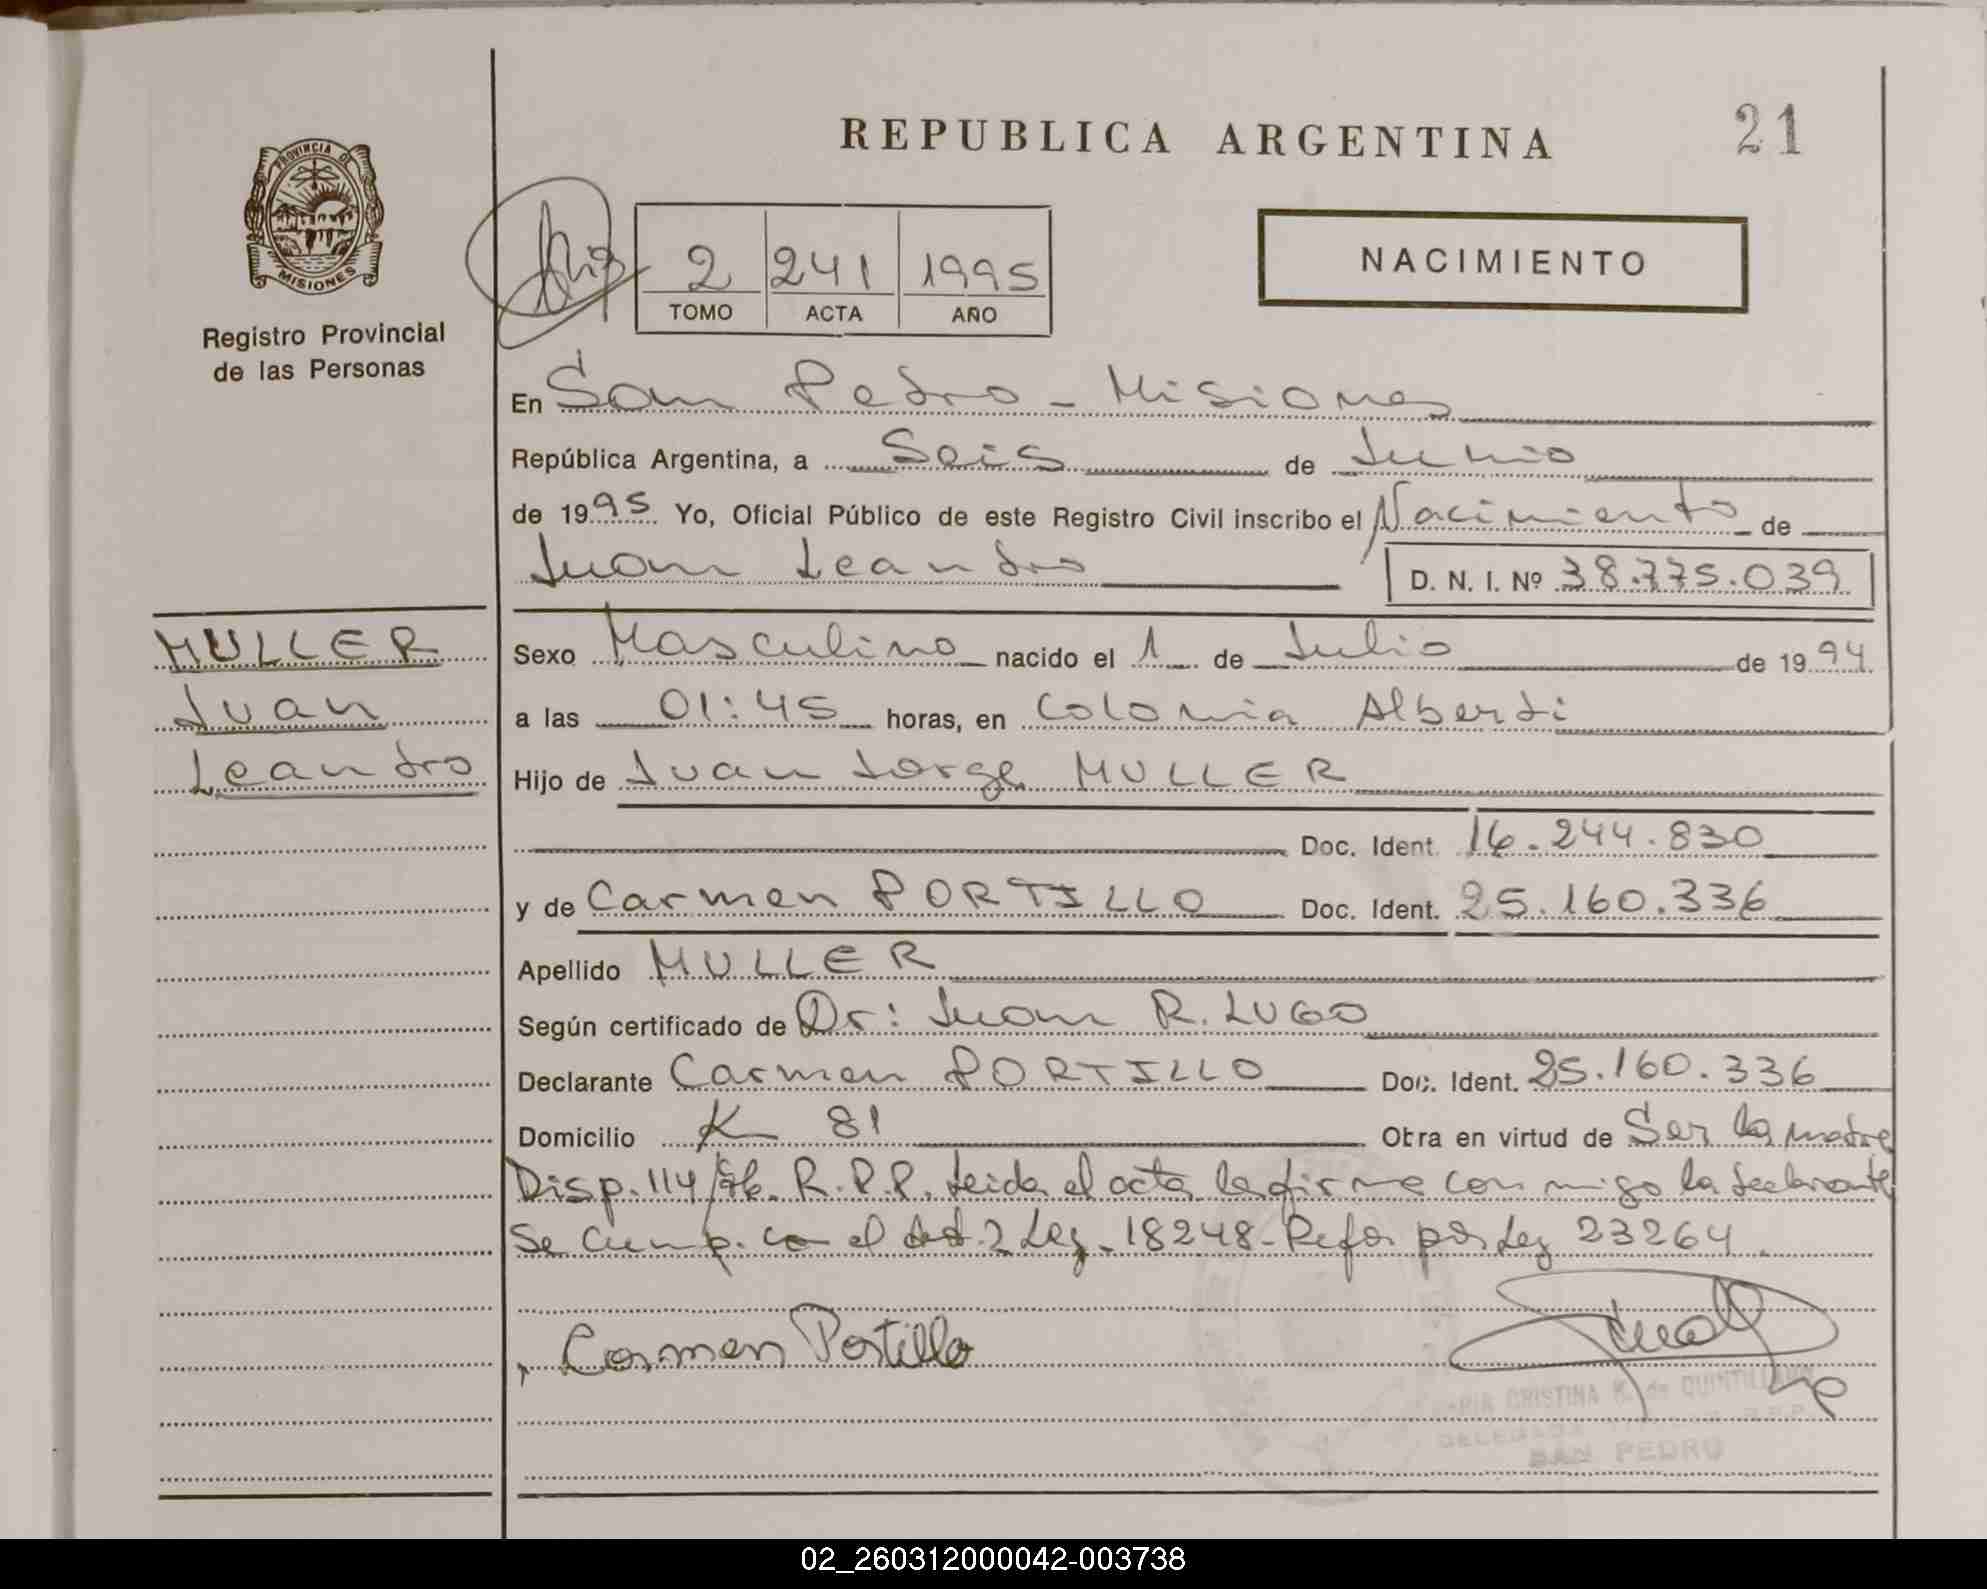 REPUBLICA ARGENTINA
21
PROVINCIA DE
MISIONES
Registro Provincial
de las Personas
2 241 1995
TOMO ACTA AÑO
NACIMIENTO
En San Pedro - Misiones
República Argentina, a Seis de Junio
de 1995 Yo, Oficial Público de este Registro Civil inscribo el Nacimiento de
Juan Leandro D. N. I. Nº 38.775.039
MULLER
Juan
Leandro
Sexo Masculino nacido el 1 de Julio de 1994
a las 01:45 horas, en Colonia Alberdi
Hijo de Juan Jorge MULLER
Doc. Ident. 16.244.830
y de Carmen PORTILLO Doc. Ident. 25.160.336
Apellido MULLER
Según certificado de Dr: Juan R. LUGO
Declarante Carmen PORTILLO Doc. Ident. 25.160.336
Domicilio K 81 Otra en virtud de Ser la madre
Disp. 114/86. R.P.P. Leida el acta la firma conmigo la declarante
Se Cump. con el Art. 2 Ley 18248 - Refor por Ley 23264.
Carmen Portillo
CRISTINA K. de QUINTILLAN
DELEGADA R.P.P.
SAN PEDRO
02_260312000042-003738